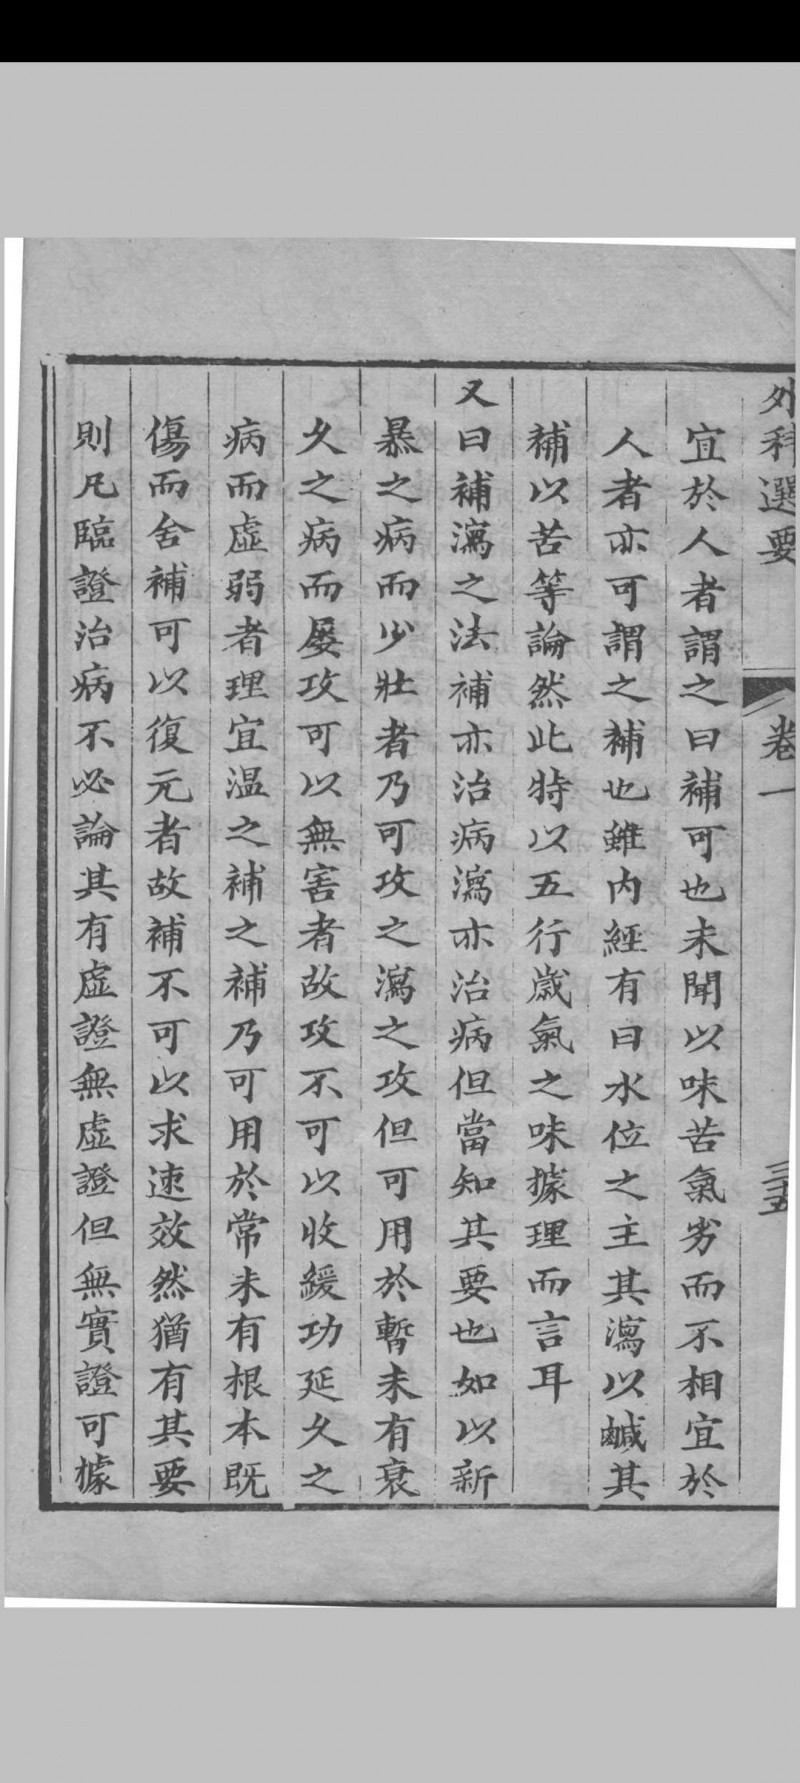 外科選要 卷一 三五
宜於人者謂之曰補可也未聞以味苦氣劣而不相宜於
人者亦可謂之補也雖內經有曰水位之主其瀉以鹹其
補以苦等論然此特以五行歲氣之味據理而言耳
又曰補瀉之法補亦治病瀉亦治病但當知其要也如以新
暴之病而少壯者乃可攻之瀉之攻但可用於暫未有衰
久之病而屢攻可以無害者故攻不可以收緩功延久之
病而虛弱者理宜溫之補之補乃可用於常未有根本既
傷而舍補可以復元者故補不可以求速效然猶有其要
則凡臨證治病不必論其有虛證無虛證但無實證可據